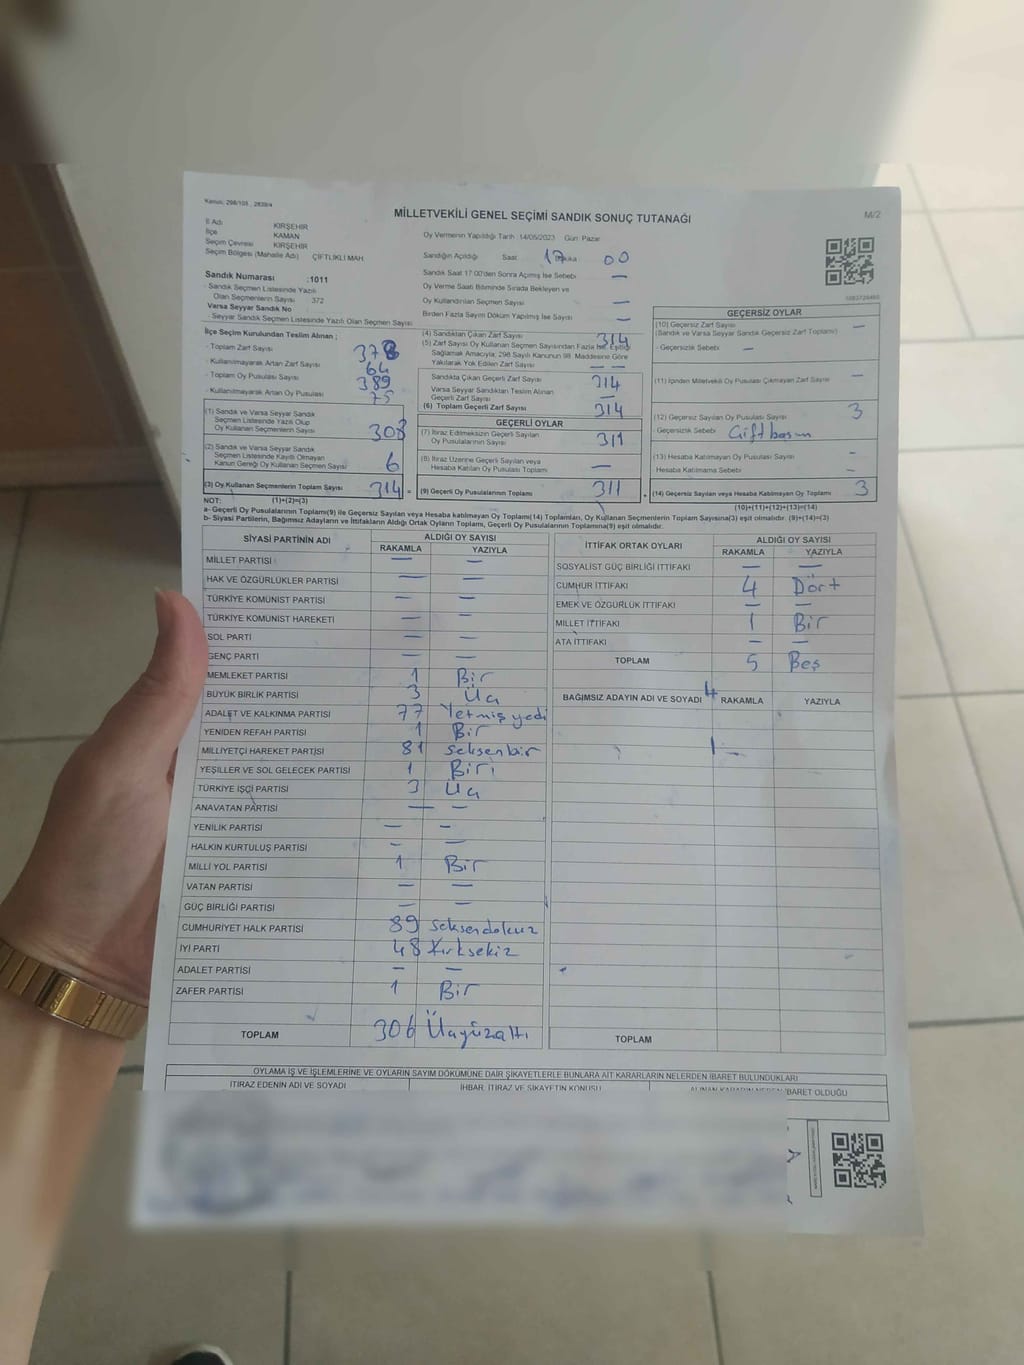 Kanun: 298/105 , 2839/4
MİLLETVEKİLİ GENEL SEÇİMİ SANDIK SONUÇ TUTANAĞI
M/2
İl Adı KIRŞEHİR
İlçe KAMAN
Seçim Çevresi KIRŞEHİR
Seçim Bölgesi (Mahalle Adı) ÇİFTLİKLİ MAH.
Oy Vermenin Yapıldığı Tarih : 14/05/2023 Gün: Pazar
Sandığın Açıldığı Saat 17 Dakika 00
Sandık Saat 17:00'den Sonra Açılmış İse Sebebi —
Oy Verme Saati Bitiminde Sırada Bekleyen ve
Oy Kullandırılan Seçmen Sayısı —
Birden Fazla Sayım Döküm Yapılmış İse Sayısı —
Sandık Numarası :1011
Sandık Seçmen Listesinde Yazılı
Olan Seçmenlerin Sayısı 372
Varsa Seyyar Sandık No
Seyyar Sandık Seçmen Listesinde Yazılı Olan Seçmen Sayısı
İlçe Seçim Kurulundan Teslim Alınan ;
- Toplam Zarf Sayısı 378
- Kullanılmayarak Artan Zarf Sayısı 64
- Toplam Oy Pusulası Sayısı 389
- Kullanılmayarak Artan Oy Pusulası 75
(1) Sandık ve Varsa Seyyar Sandık
Seçmen Listesinde Yazılı Olup
Oy Kullanan Seçmenlerin Sayısı 308
(2) Sandık ve Varsa Seyyar Sandık
Seçmen Listesinde Kayıtlı Olmayan
Kanun Gereği Oy Kullanan Seçmen Sayısı 6
(3) Oy Kullanan Seçmenlerin Toplam Sayısı 314 =
(4) Sandıktan Çıkan Zarf Sayısı 314
(5) Zarf Sayısı Oy Kullanan Seçmen Sayısından Fazla İse, Eşitliği
Sağlamak Amacıyla; 298 Sayılı Kanunun 98. Maddesine Göre
Yakılarak Yok Edilen Zarf Sayısı — —
Sandıkta Çıkan Geçerli Zarf Sayısı 314
Varsa Seyyar Sandıktan Teslim Alınan
Geçerli Zarf Sayısı —
(6) Toplam Geçerli Zarf Sayısı 314
GEÇERLİ OYLAR
(7) İtiraz Edilmeksizin Geçerli Sayılan
Oy Pusulalarının Sayısı 311
(8) İtiraz Üzerine Geçerli Sayılan veya
Hesaba Katılan Oy Pusulası Toplamı —
(9) Geçerli Oy Pusulalarının Toplamı 311 +
GEÇERSİZ OYLAR
(10) Geçersiz Zarf Sayısı —
(Sandık ve Varsa Seyyar Sandık Geçersiz Zarf Toplamı)
- Geçersizlik Sebebi —
(11) İçinden Milletvekili Oy Pusulası Çıkmayan Zarf Sayısı —
(12) Geçersiz Sayılan Oy Pusulası Sayısı 3
- Geçersizlik Sebebi Çift basım
(13) Hesaba Katılmayan Oy Pusulası Sayısı –
Hesaba Katılmama Sebebi –
(14) Geçersiz Sayılan veya Hesaba Katılmayan Oy Toplamı 3
NOT: (1)+(2)=(3)
(10)+(11)+(12)+(13)=(14)
a- Geçerli Oy Pusulalarının Toplamı(9) ile Geçersiz Sayılan veya Hesaba katılmayan Oy Toplamı(14) Toplamları, Oy Kullanan Seçmenlerin Toplam Sayısına(3) eşit olmalıdır. (9)+(14)=(3)
b- Siyasi Partilerin, Bağımsız Adayların ve İttifakların Aldığı Ortak Oyların Toplamı, Geçerli Oy Pusulalarının Toplamına(9) eşit olmalıdır.
SİYASİ PARTİNİN ADI ALDIĞI OY SAYISI
RAKAMLA YAZIYLA
MİLLET PARTİSİ — —
HAK VE ÖZGÜRLÜKLER PARTİSİ — —
TÜRKİYE KOMÜNİST PARTİSİ — —
TÜRKİYE KOMÜNİST HAREKETİ — —
SOL PARTİ — —
GENÇ PARTİ — —
MEMLEKET PARTİSİ 1 Bir
BÜYÜK BİRLİK PARTİSİ 3 Üç
ADALET VE KALKINMA PARTİSİ 77 Yetmiş yedi
YENİDEN REFAH PARTİSİ 1 Bir
MİLLİYETÇİ HAREKET PARTİSİ 81 seksenbir
YEŞİLLER VE SOL GELECEK PARTİSİ 1 Biri
TÜRKİYE İŞÇİ PARTİSİ 3 Üç
ANAVATAN PARTİSİ — —
YENİLİK PARTİSİ — –
HALKIN KURTULUŞ PARTİSİ – —
MİLLİ YOL PARTİSİ 1 Bir
VATAN PARTİSİ — —
GÜÇ BİRLİĞİ PARTİSİ — —
CUMHURİYET HALK PARTİSİ 89 seksendokuz
İYİ PARTİ 48 Kırksekiz
ADALET PARTİSİ – —
ZAFER PARTİSİ 1 Bir
TOPLAM 306 Üçyüzaltı
İTTİFAK ORTAK OYLARI ALDIĞI OY SAYISI
RAKAMLA YAZIYLA
SOSYALİST GÜÇ BİRLİĞİ İTTİFAKI — —
CUMHUR İTTİFAKI 4 Dört
EMEK VE ÖZGÜRLÜK İTTİFAKI — —
MİLLET İTTİFAKI 1 Bir
ATA İTTİFAKI — —
TOPLAM 5 Beş
BAĞIMSIZ ADAYIN ADI VE SOYADI 4 RAKAMLA YAZIYLA
TOPLAM
OYLAMA İŞ VE İŞLEMLERİNE VE OYLARIN SAYIM DÖKÜMÜNE DAİR ŞİKAYETLERLE BUNLARA AİT KARARLARIN NELERDEN İBARET BULUNDUKLARI
İTİRAZ EDENİN ADI VE SOYADI
İHBAR, İTİRAZ VE ŞİKAYETİN KONUSU
ALINAN KARARIN NEDEN İBARET OLDUĞU